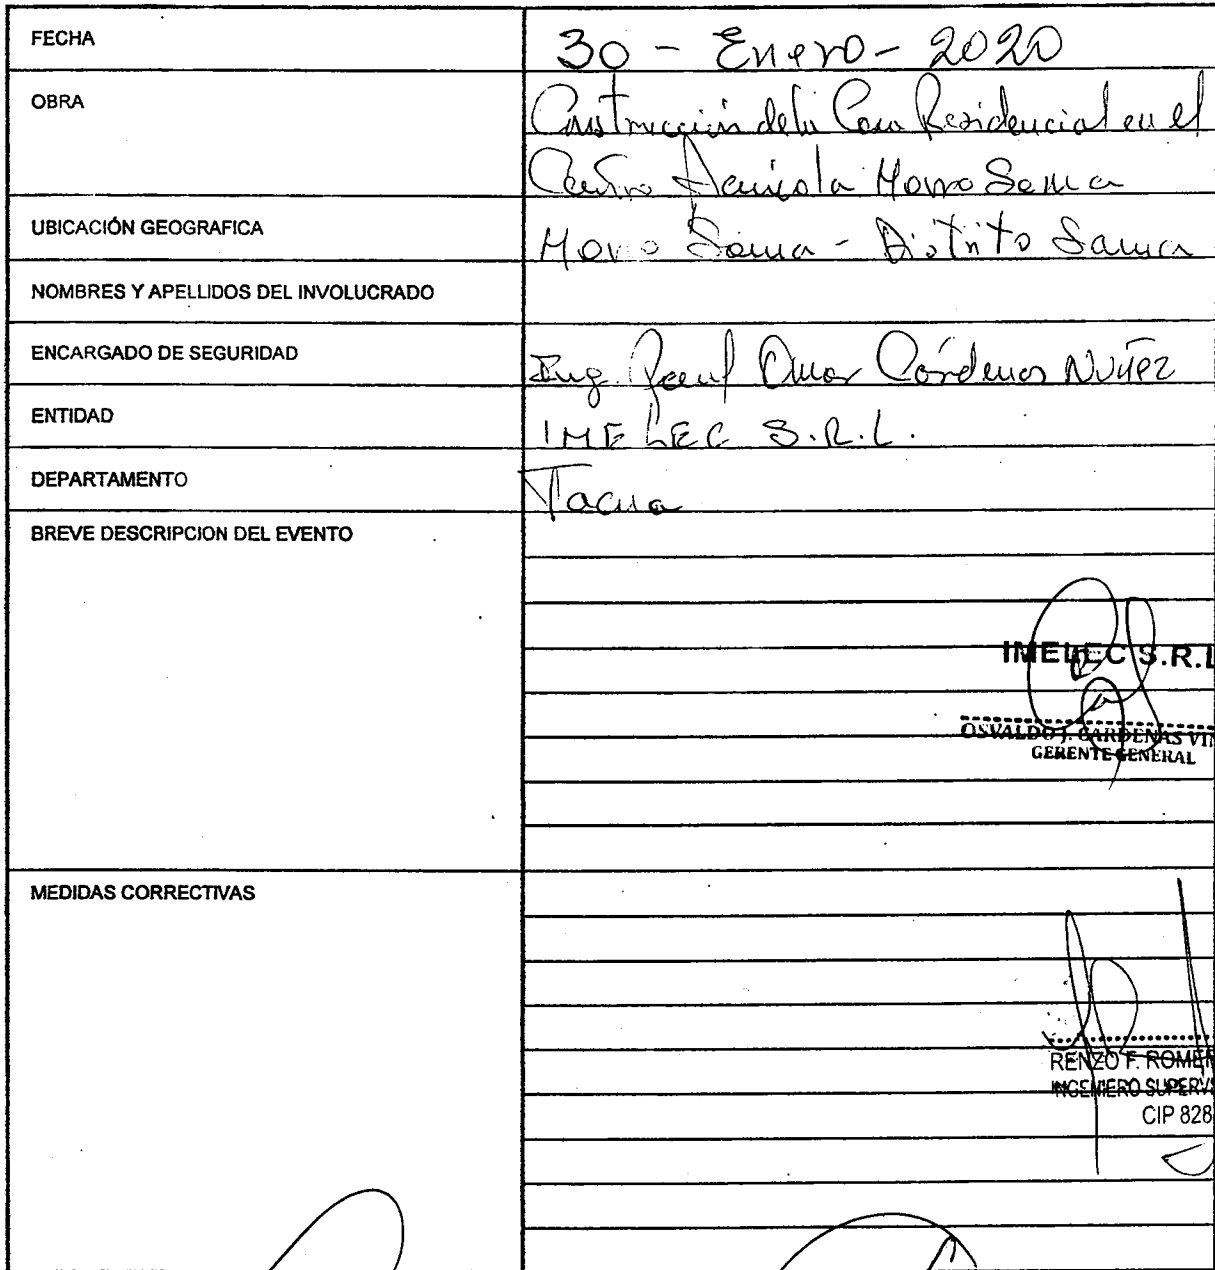 FECHA
30 - Enero - 2020
OBRA
Construcción de la Casa Residencial en el
Centro Acuícola Morro Sama
UBICACIÓN GEOGRAFICA
Morro Sama - Distrito Sama
NOMBRES Y APELLIDOS DEL INVOLUCRADO
ENCARGADO DE SEGURIDAD
Ing. Omar Cárdenas Nuñez
ENTIDAD
IMELEC S.R.L.
DEPARTAMENTO
Tacna
BREVE DESCRIPCION DEL EVENTO
IMELEC S.R.L
OSVALDO J. CARDENAS
GERENTE GENERAL
MEDIDAS CORRECTIVAS
RENZO F. ROMER
INGENIERO SUPERV
CIP 828